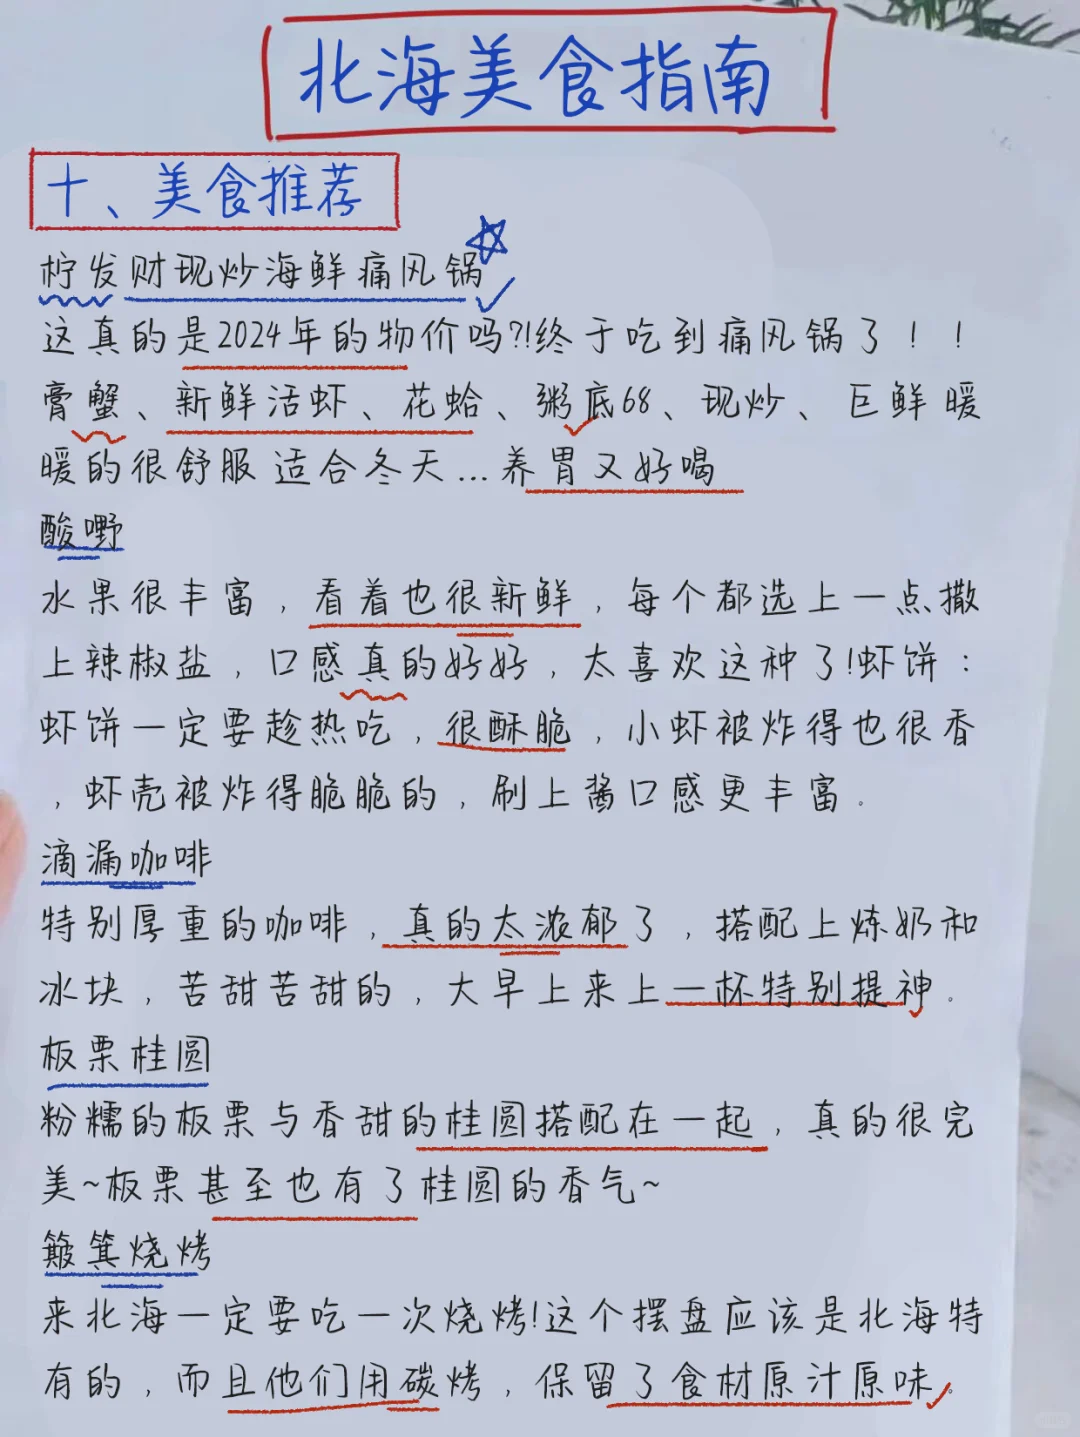 北海美食指南
十、美食推荐
柠发财现炒海鲜痛风锅
这真的是2024年的物价吗?!终于吃到痛风锅了！！
膏蟹、新鲜活虾、花蛤、粥底68、现炒、巨鲜暖
暖的很舒服 适合冬天...养胃又好喝
酸嘢
水果很丰富，看着也很新鲜，每个都选上一点撒
上辣椒盐，口感真的好好，太喜欢这种了!虾饼：
虾饼一定要趁热吃，很酥脆，小虾被炸得也很香
，虾壳被炸得脆脆的，刷上酱口感更丰富。
滴漏咖啡
特别厚重的咖啡，真的太浓郁了，搭配上炼奶和
冰块，苦甜苦甜的，大早上来上一杯特别提神。
板栗桂圆
粉糯的板栗与香甜的桂圆搭配在一起，真的很完
美~板栗甚至也有了桂圆的香气~
簸箕烧烤
来北海一定要吃一次烧烤!这个摆盘应该是北海特
有的，而且他们用碳烤，保留了食材原汁原味。